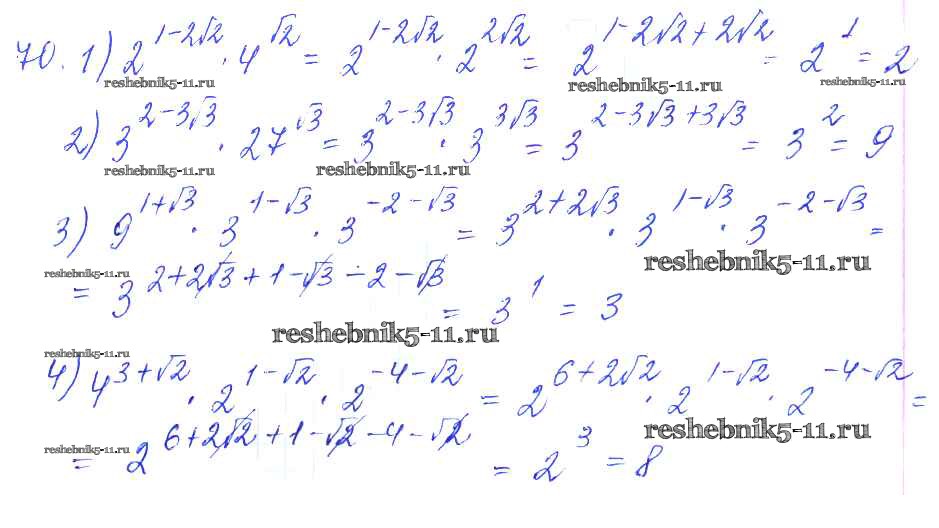 70. 1) 2^(1-2√2) · 4^(√2) = 2^(1-2√2) · 2^(2√2) = 2^(1-2√2+2√2) = 2^1 = 2
reshebnik5-11.ru reshebnik5-11.ru reshebnik5-11.ru
2) 3^(2-3√3) · 27^(√3) = 3^(2-3√3) · 3^(3√3) = 3^(2-3√3+3√3) = 3^2 = 9
reshebnik5-11.ru reshebnik5-11.ru
3) 9^(1+√3) · 3^(1-√3) · 3^(-2-√3) = 3^(2+2√3) · 3^(1-√3) · 3^(-2-√3) =
reshebnik5-11.ru reshebnik5-11.ru
= 3^(2+2√3+1-√3-2-√3) = 3^1 = 3
reshebnik5-11.ru
reshebnik5-11.ru
4) 4^(3+√2) · 2^(1-√2) · 2^(-4-√2) = 2^(6+2√2) · 2^(1-√2) · 2^(-4-√2) =
reshebnik5-11.ru reshebnik5-11.ru
= 2^(6+2√2+1-√2-4-√2) = 2^3 = 8